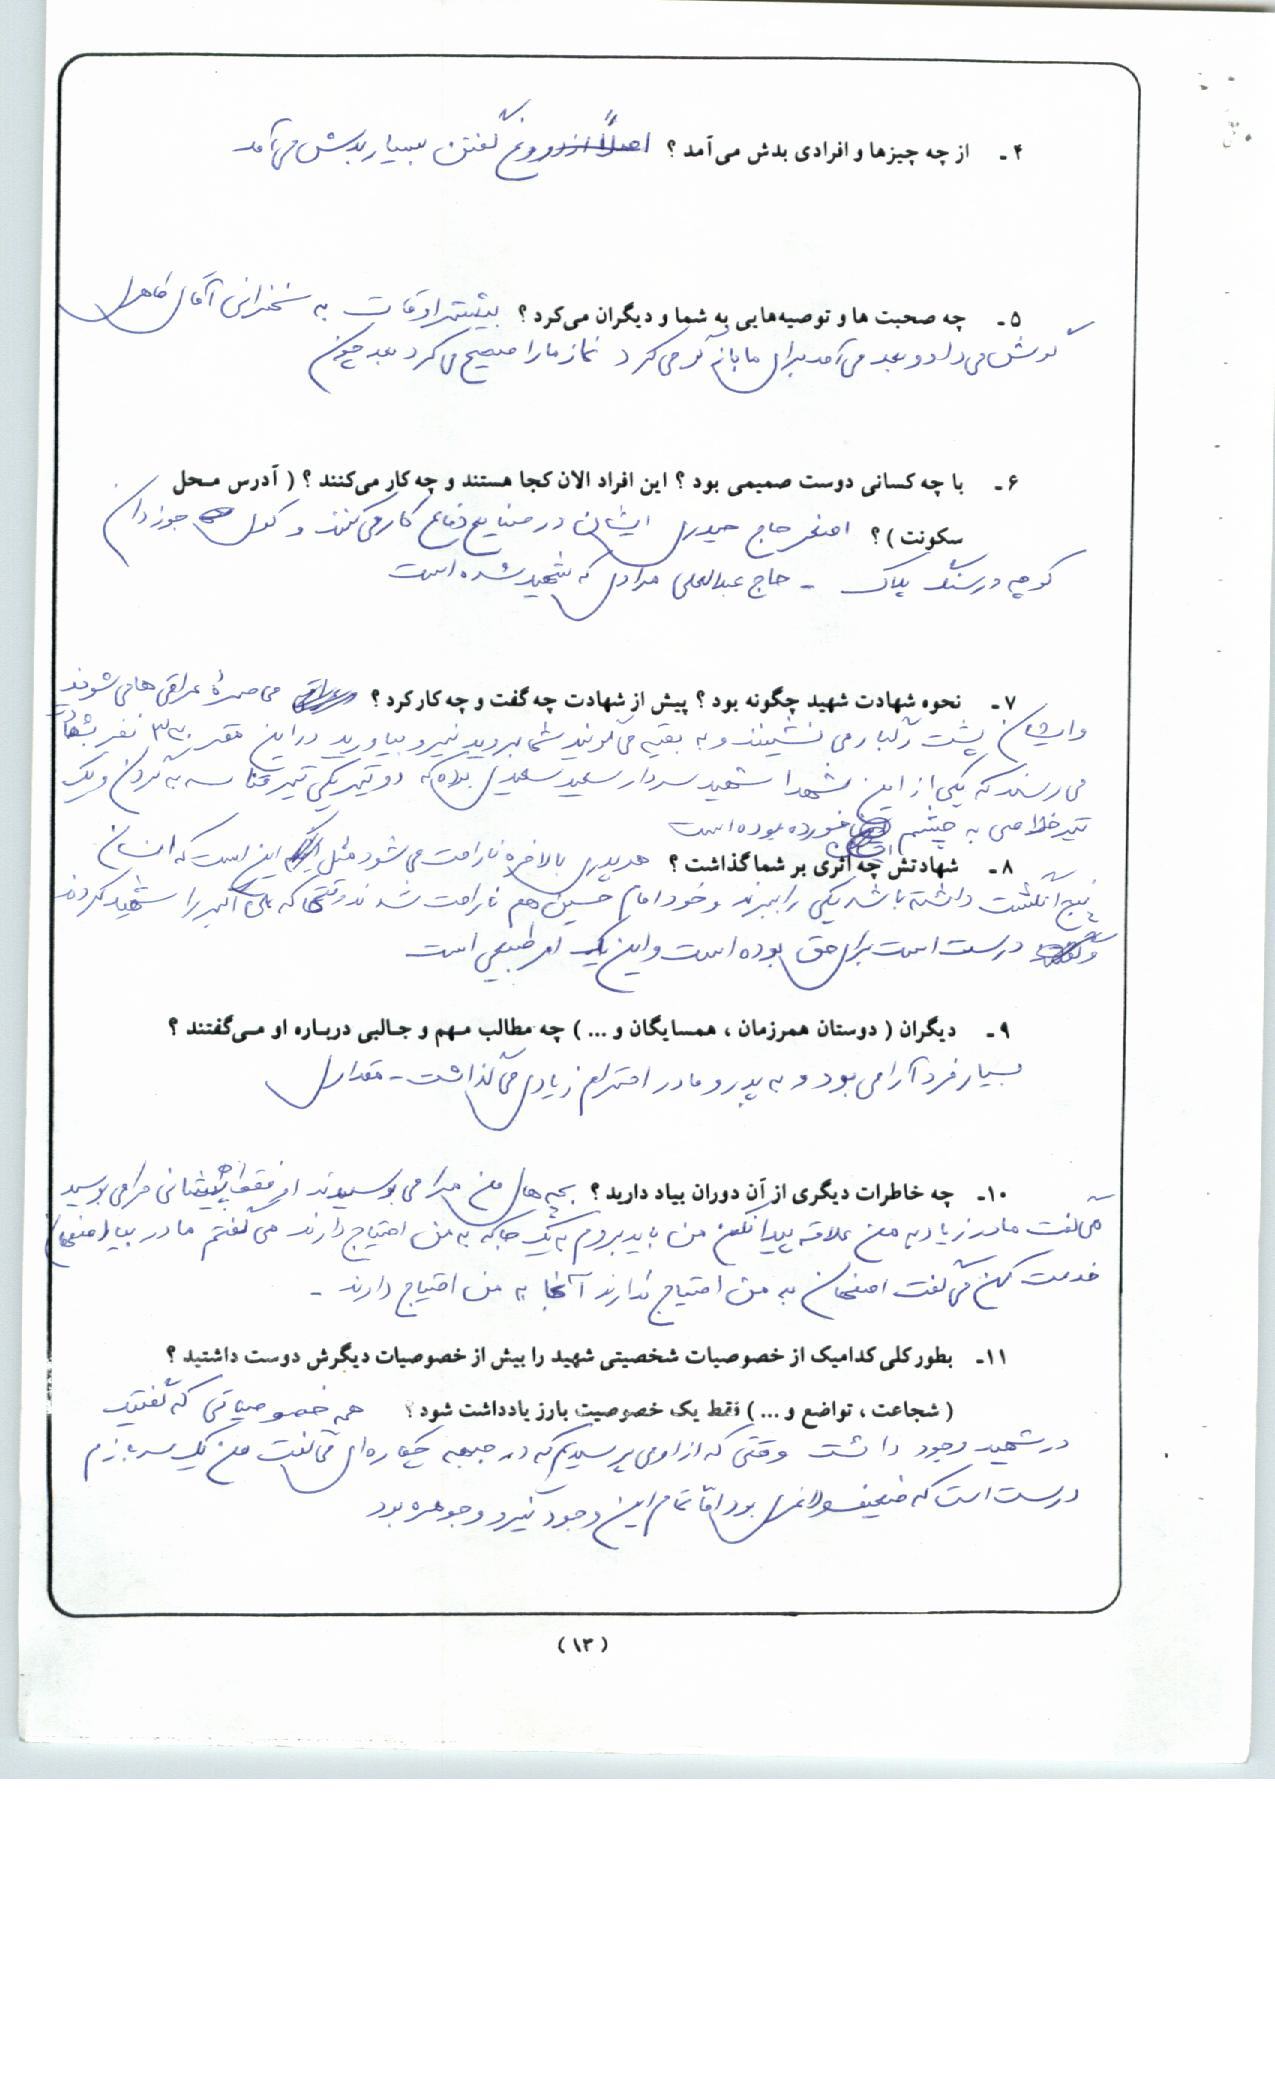 ۴ـ از چه چیزها و افرادی بدش می‌آمد ؟ اصلاً از دروغ گفتن بسیار بدش می‌آمد
۵ـ چه صحبت ها و توصیه‌هایی به شما و دیگران می‌کرد ؟ بیشتر اوقات به سخنرانی آقای
گوش می داد و بعد می آمد برای ما بازگو می کرد نماز ما را صحیح می کرد بعد چون
۶ـ با چه کسانی دوست صمیمی بود ؟ این افراد الان کجا هستند و چه کار می‌کنند ؟ ( آدرس محل
سکونت ) ؟ اصغر حاج حیدری ایشان در صنایع دفاع کار می کنند و کوی جوزدان
کوچه درسنگ پلاک ـ حاج عبدالعلی مرادی که شهید شده است
۷ـ نحوه شهادت شهید چگونه بود ؟ پیش از شهادت چه گفت و چه کار کرد ؟ محاصرهٔ عراقی ها می شوند
و ایشان پشت می نشینند و به بقیه می گویند شما بروید نیرو بیاورید در این نفر
می رسند که یکی از این شهدا شهید سردار سعید سعیدی بوده که دو تیر یکی تیر به گردن و یک
تیر خلاصی به چشم خورده بوده است
۸ـ شهادتش چه اثری بر شما گذاشت ؟ هر پدری بالاخره ناراحت می شود مثل این است که انسان
پنج انگشت داشته باشد یکی را ببرند و خود امام حسین هم ناراحت شدند وقتی که علی اکبر را شهید کردند
درست است برای حق بوده است و این یک امر طبیعی است
۹ـ دیگران ( دوستان همرزمان ، همسایگان و ... ) چه مطالب مهم و جالبی درباره او می‌گفتند ؟
بسیار فرد آرامی بود و به پدر و مادر احترام زیادی می گذاشت ـ
۱۰ـ چه خاطرات دیگری از آن دوران بیاد دارید ؟ بچه های من مرا می بوسیدند او فقط پیشانی مرا می بوسید
می گفت مادر زیاد به من علاقه پیدا نکن من باید بروم به یک جا که به من احتیاج دارند می گفتم مادر بیا اصفهان
خدمت کن می گفت اصفهان به من احتیاج ندارند آنجا به من احتیاج دارند ـ
۱۱ـ بطور کلی کدامیک از خصوصیات شخصیتی شهید را بیش از خصوصیات دیگرش دوست داشتید ؟
( شجاعت ، تواضع و ... ) فقط یک خصوصیت بارز یادداشت شود ؟ همه خصوصیاتی که گفتید
در شهید وجود داشت وقتی که از او می پرسیدیم که در جبهه چکاره ای می گفت من یک سربازم
درست است که ضعیف و لاغری بود امّا تمام این وجود نیرو و جوهره بود
( ۱۳ )